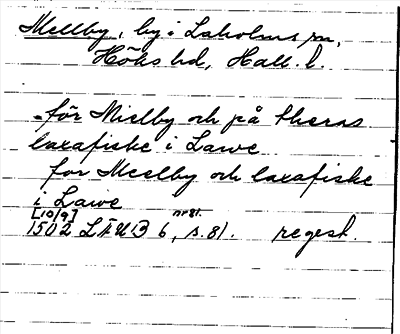 Mellby, by i Laholms sn,
Höks hd, Hall. l.
för Mielby och på theras
laxafiske i Lawe
for Meelby och laxafiske
i Lawe
[10/9] nr 81.
1502 LÄUB 6, s. 81. regest.